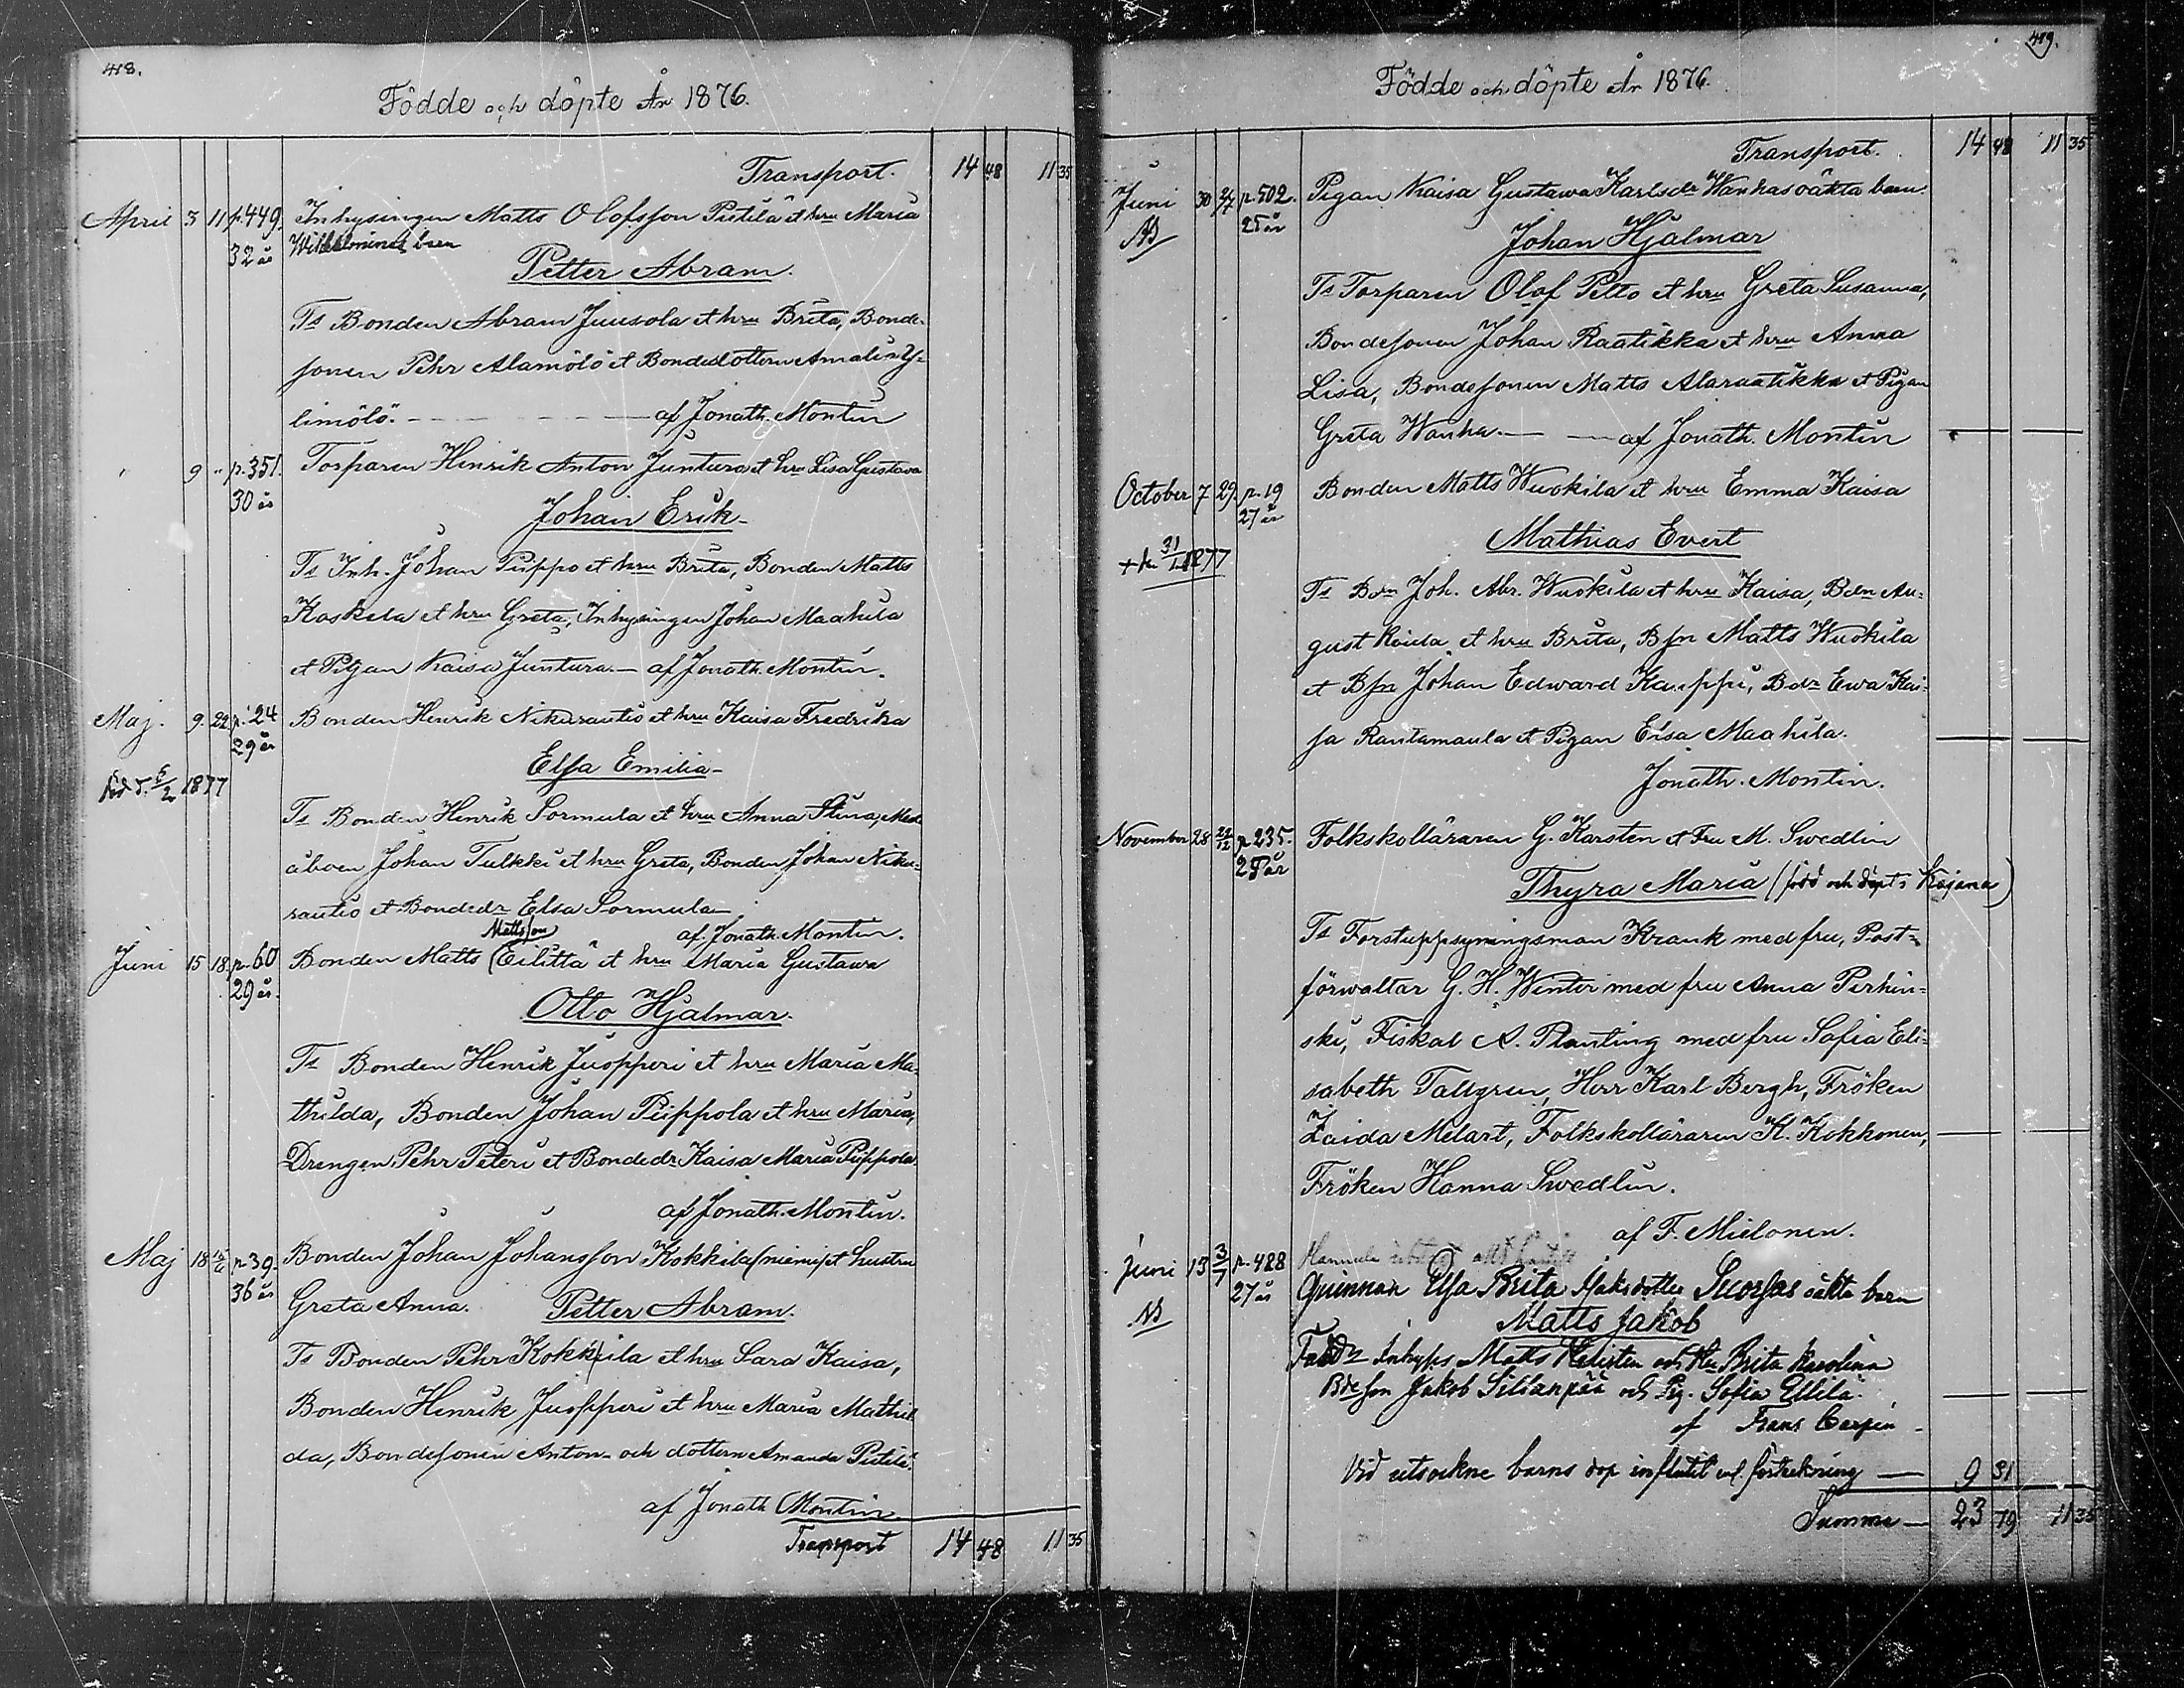 418.
Födde och döpte År 1876.
Transport. 14 48 11 35
April 3 11 p. 449. Inhysingen Matts Olofsson Pistilä et hru Maria
32 år Wilhelminas barn
Petter Abram.
Ts Bonden Abram Juusola et hru Brita, Bonde-
sonen Pehr Alamölö et Bondedottern Amalia Y-
limölö. - af Jonath. Montin
" 9 " p. 351. Torparen Henrik Anton Juntura et hru Lisa Gustava
30 år
Johan Erik
Ts Inh. Johan Piippo et hru Brita, Bonden Matts
Koskela et hru Greta, Inhysingen Johan Maahila
et Pigan Kaisa Juntura. — af Jonath. Montin.
Maj. 9. 22 p. 24 Bonden Henrik Nikurautio et hru Kaisa Fredrika
29 år
Elsa Emilia
död d. 5/2 1877
Ts Bonden Henrik Sormula et hru Anna Stina,
åboen Johan Tulkki et hru Greta, Bonden Johan Niku-
rautio et Bondedr Elsa Sormula
Mattsson af Jonath. Montin.
Juni 15 18 p. 60 Bonden Matts Eilittä et hru Maria Gustawa
29 år.
Otto Hjalmar.
Ts Bonden Henrik Juopperi et hru Maria Ma-
thilda, Bonden Johan Piippola et hru Maria,
Drengen Pehr Peteri et Bondedr Kaisa Maria Piippola.
af Jonath. Montin.
Maj 18 p. 39. Bonden Johan Johansson Kokkila (niemi) et hustru
36 år Greta Anna. Petter Abram.
Ts Bonden Pehr Kokkila et hru Sara Kaisa,
Bonden Henrik Juopperi et hru Maria Mathil-
da, Bondesonen Anton och dottern Amanda Pistilä.
af Jonath Montin
Transport 14 48 11 35
419.
Födde och döpte År 1876.
Transport. 14 48 11 35
Juni 30 p. 502. Pigan Kaisa Gustawa Karlsdr Wanhas oäkta barn
25 år
Johan Hjalmar
Ts Torparen Olof Pelto et hru Greta Susanna,
Bondesonen Johan Raatikka et hru Anna
Lisa, Bondesonen Matts Alaraatikka et Pigan
Greta Wanha. — af Jonath. Montin
October 7 29. p. 19 Bonden Matts Wuokila et hru Emma Kaisa
27 år
Mathias Evert
+ den 31/1 1877
Ts Bdn Joh. Abr. Wuokila et hru Kaisa, Bdn Au-
gust et hru Brita, Bsn Matts Wuokila
et Bsn Johan Edward Kauppi, Bdr Ewa Kai-
sa Rantamaula et Pigan Elsa Maahila.
Jonath. Montin.
November 28 p. 235. Folkskolläraren G. Karsten et Fru M. Swedlin
Thyra Maria (född och döpt i Kajana)
Ts Forstuppsyningsman Krank med fru, Post-
förwaltar G. H. Winter med fru Anna Perkin-
ski, Fiskal A. Planting med fru Sofia Eli-
sabeth Tallgren, Herr Karl Bergh, Fröken
Zaida Melart, Folkskolläraren K. Kokkonen,
Fröken Hanna Swedlin.
af F. Mielonen.
Juni 13 3/7 p. 488 Hannula
27 år Qvinnan Elsa Brita Isaksdotter oäkta barn
Matts Jakob
Inhyss Matts och Hu Brita Karolina
Bdeson Jakob Sillanpää och Pig. Sofia Ellilä.
af Frans
Vid utsockne barns dop influtit enl. förteckning — 9 31
Summa — 23 79 11 35